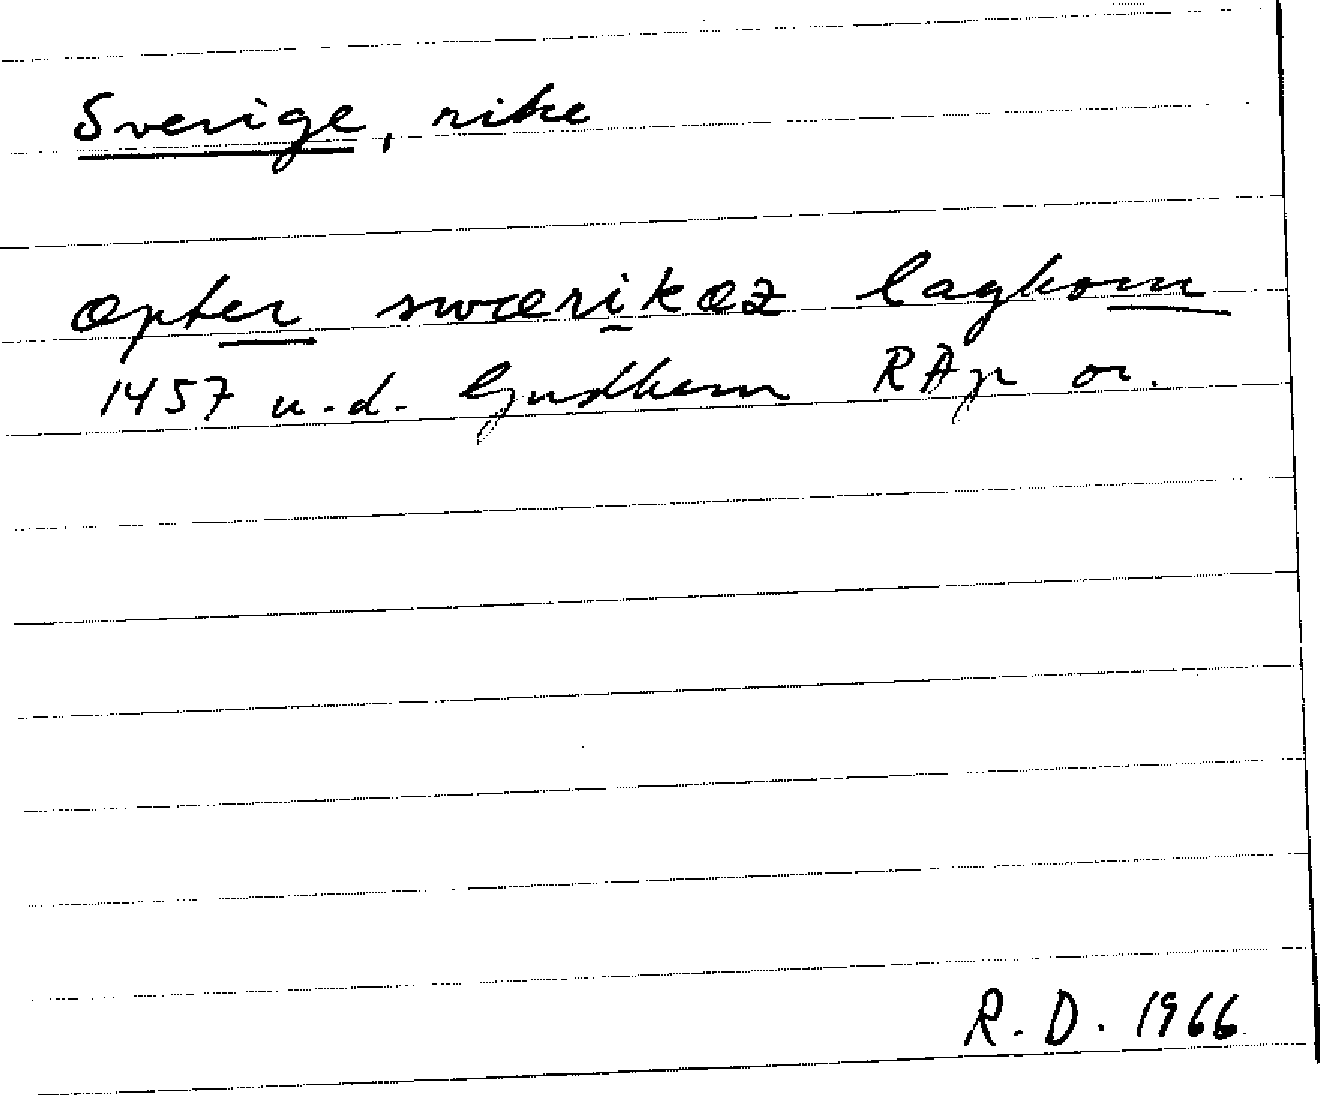 Sverige, rike
æpter swærikæz laghom
1457 u.d. Gudhem RAp or.
R.D. 1966